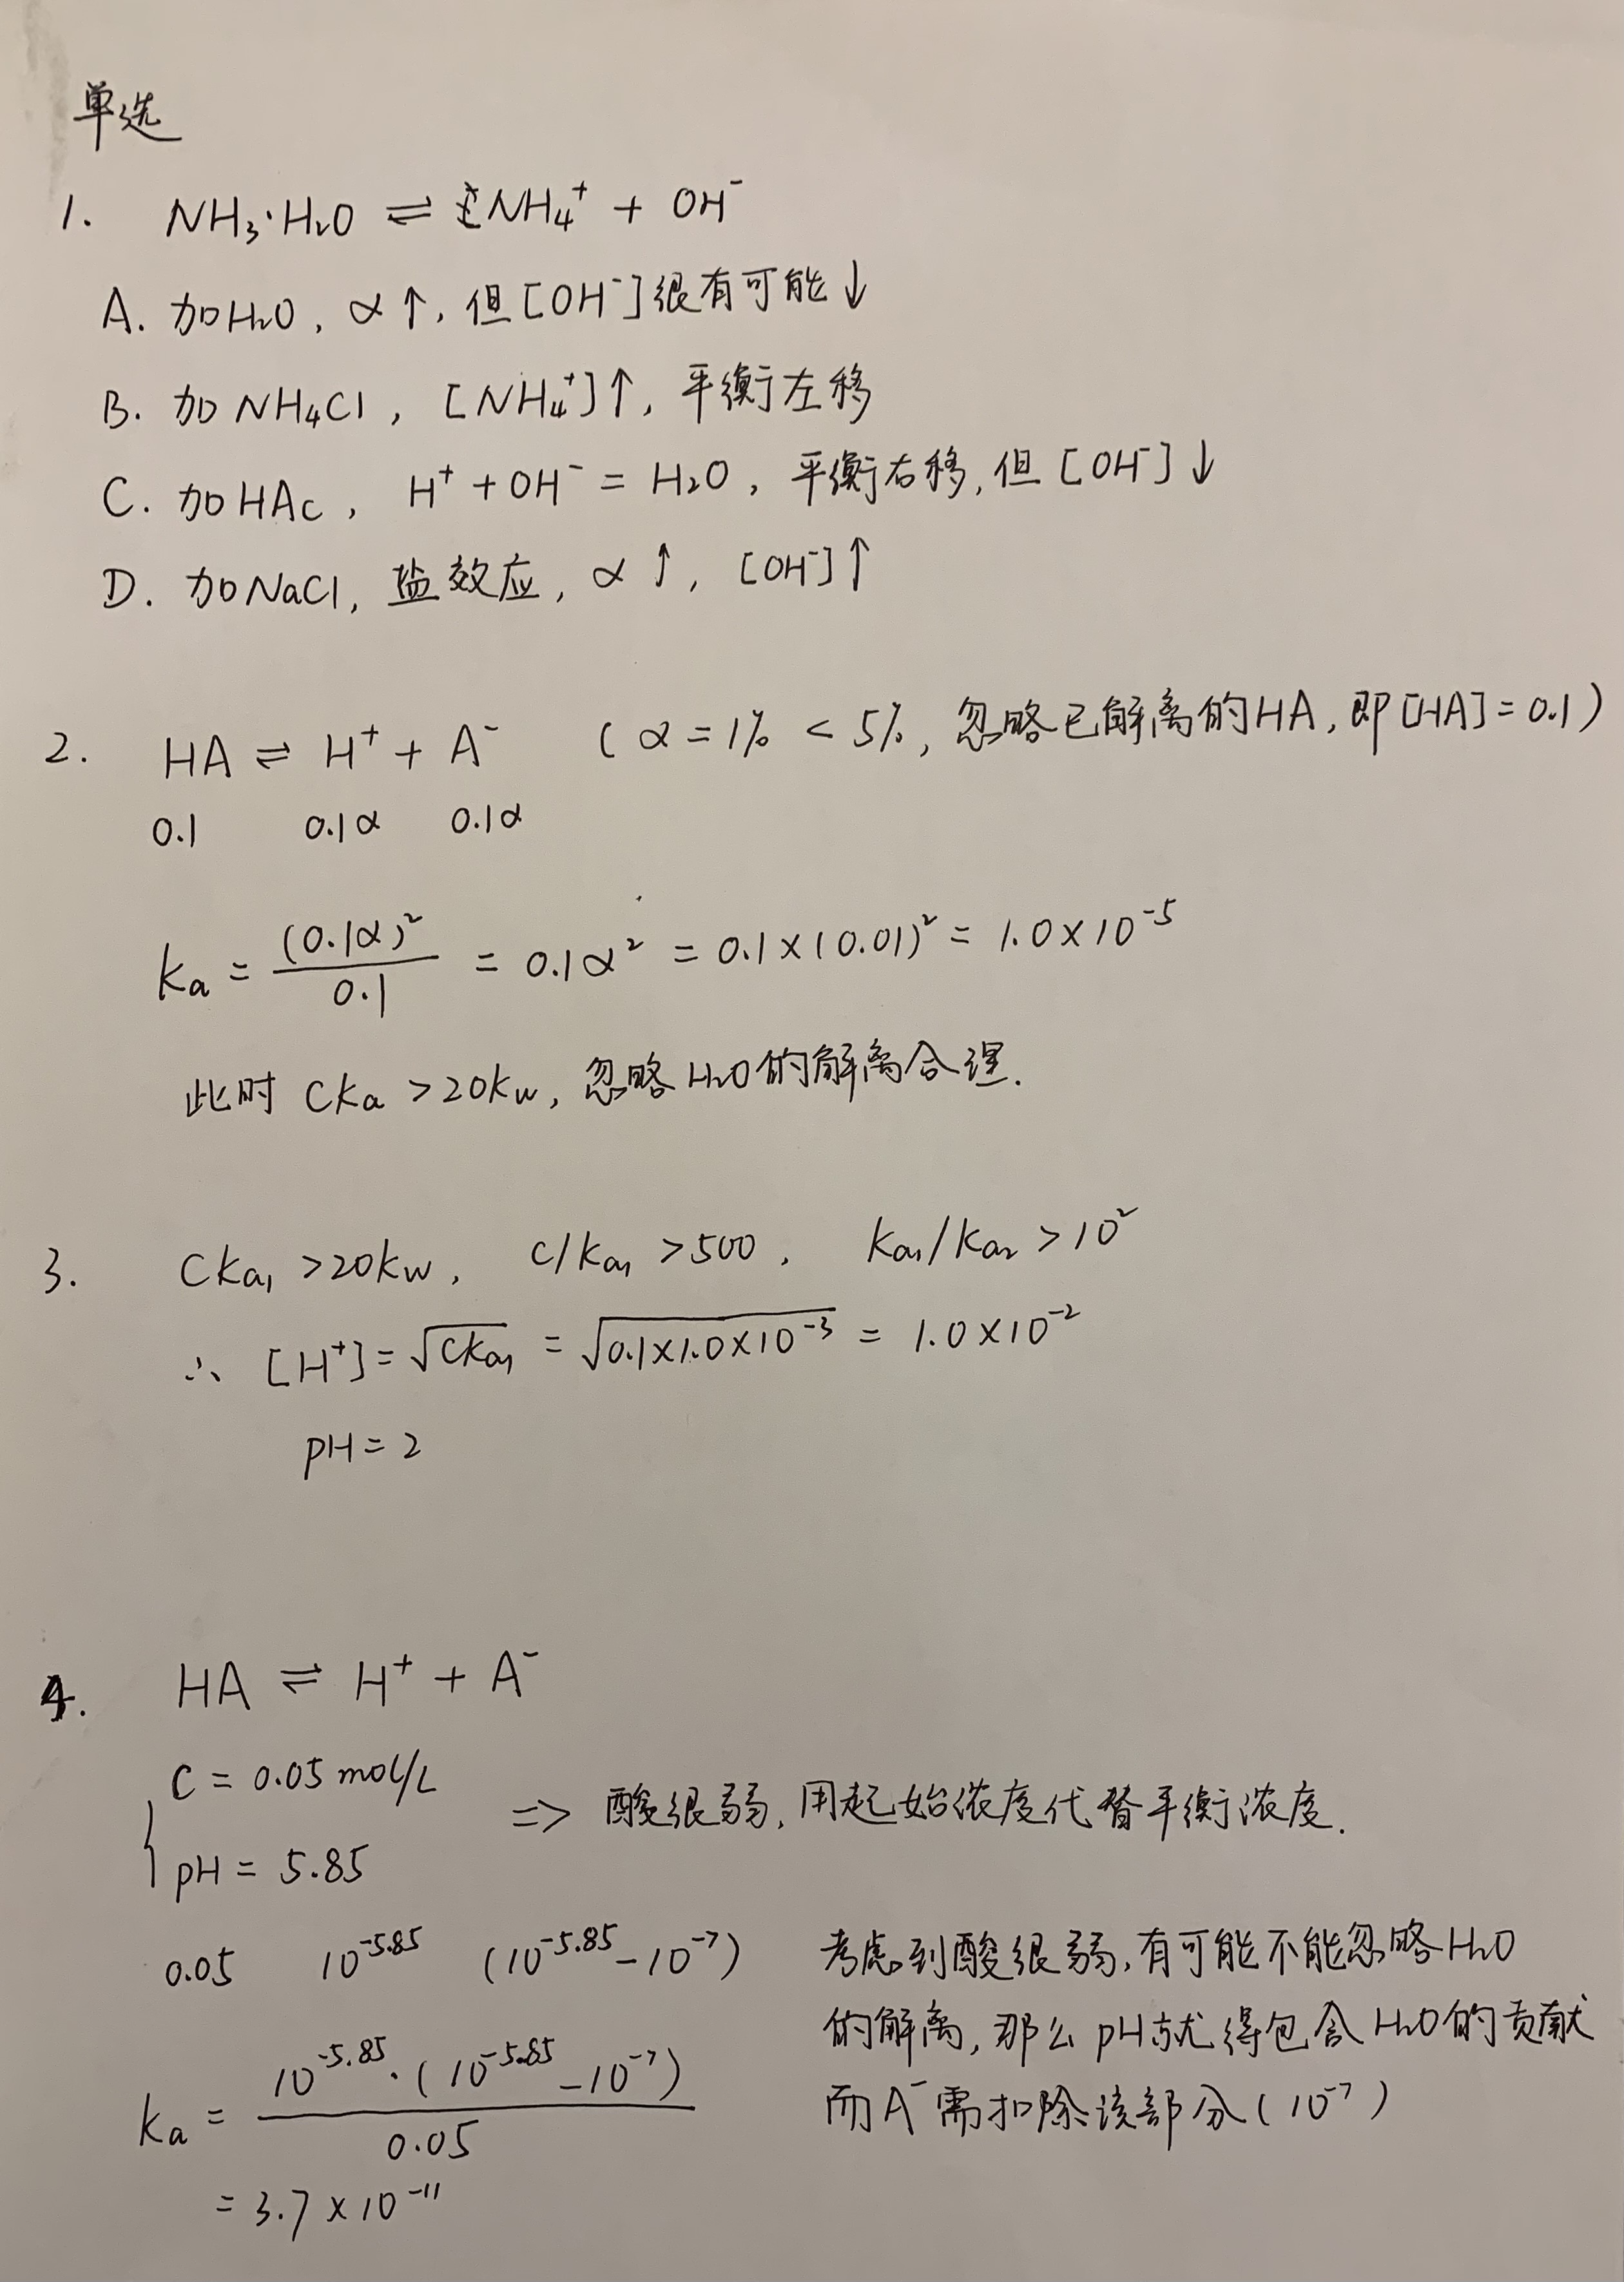 单选
1. NH₃·H₂O ⇌ NH₄⁺ + OH⁻
A. 加H₂O, α↑, 但[OH⁻]很有可能↓
B. 加NH₄Cl, [NH₄⁺]↑, 平衡左移
C. 加HAc, H⁺ + OH⁻ = H₂O, 平衡右移, 但[OH⁻]↓
D. 加NaCl, 盐效应, α↑, [OH⁻]↑
2. HA ⇌ H⁺ + A⁻ (α = 1% < 5%, 忽略已解离的HA, 即[HA] = 0.1)
0.1 0.1α 0.1α
ka = (0.1α)²/0.1 = 0.1α² = 0.1×(0.01)² = 1.0×10⁻⁵
此时 cka > 20kw, 忽略H₂O的解离合理.
3. cka₁ > 20kw, c/ka₁ > 500, ka₁/ka₂ > 10²
∴ [H⁺] = √cka₁ = √0.1×1.0×10⁻³ = 1.0×10⁻²
pH = 2
4. HA ⇌ H⁺ + A⁻
{ c = 0.05 mol/L
pH = 5.85
=> 酸很弱, 用起始浓度代替平衡浓度.
0.05 10⁻⁵·⁸⁵ (10⁻⁵·⁸⁵ − 10⁻⁷)
ka = 10⁻⁵·⁸⁵·(10⁻⁵·⁸⁵ − 10⁻⁷)/0.05
= 3.7×10⁻¹¹
考虑到酸很弱, 有可能不能忽略H₂O
的解离, 那么pH就得包含H₂O的贡献
而A⁻需扣除该部分(10⁻⁷)